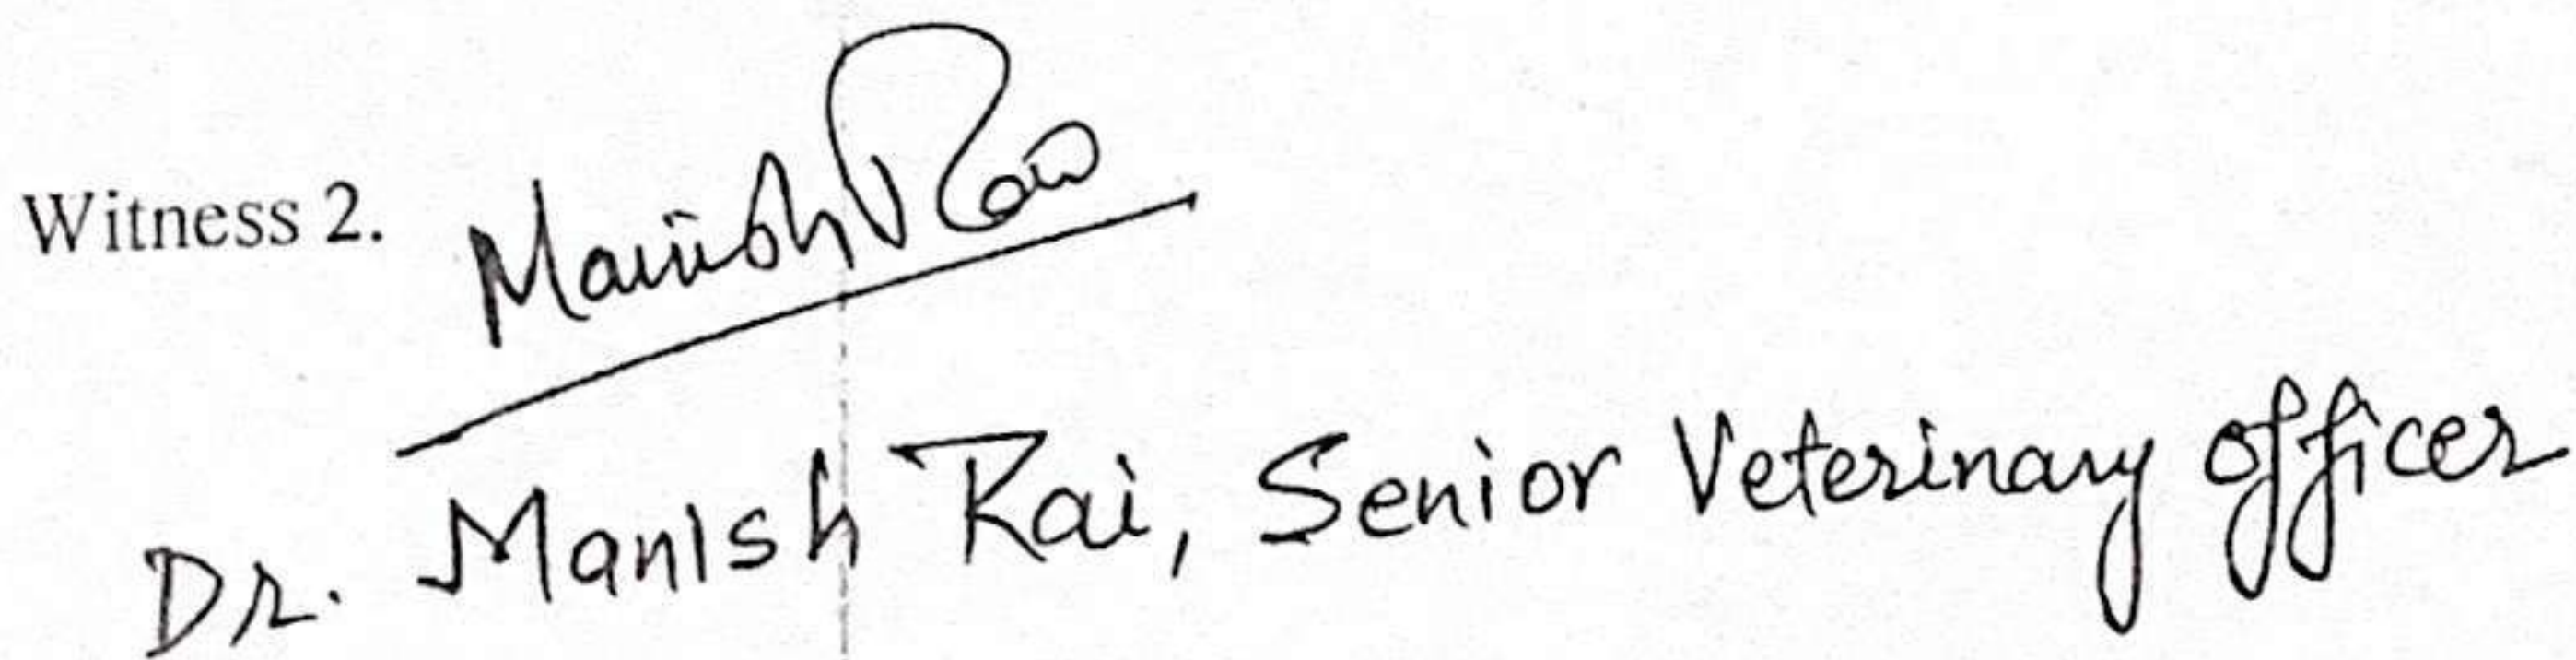 Witness 2. Manish Rai
Dr. Manish Rai, Senior Veterinary officer